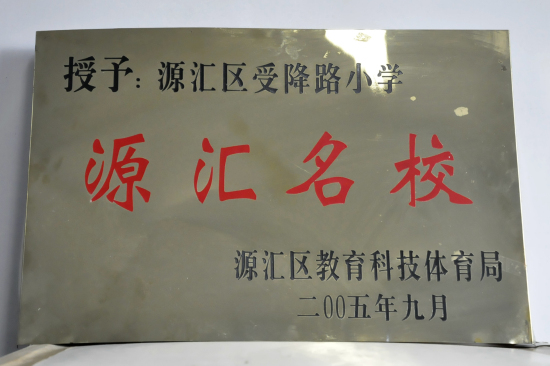 授予：源汇区受降路小学
源汇名校
源汇区教育科技体育局
二00五年九月